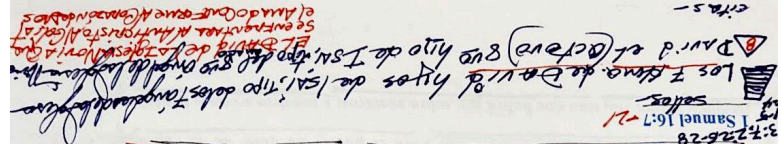 I Samuel 16:7 -21
sellos
Los 7 Hnos. de David hijos de ISAI, tipo de los 7 angeles de la Iglesia
David el (octavo) 8vo hijo de ISAI, tipo del 8vo angel de la Iglesia
EL DAVID de la Iglesia Novia Que
se enfrentara Al Anticristo
el Amado Conforme Al Corazon de Dios
citas -